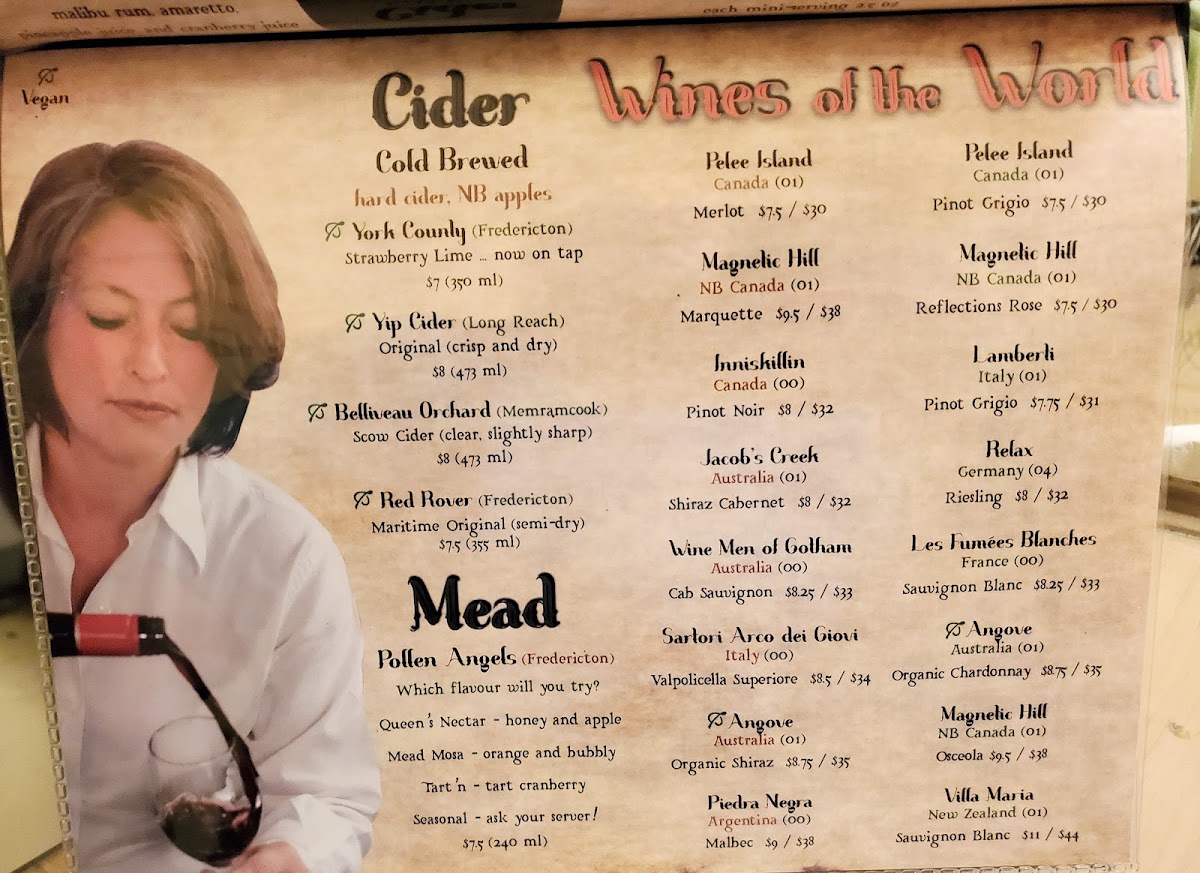 malibu rum, amaretto,
pineapple juice and cranberry juice
each mini-serving 2.5 oz
Vegan
Cider
Cold Brewed
hard cider, NB apples
York County (Fredericton)
Strawberry Lime ... now on tap
$7 (350 ml)
Yip Cider (Long Reach)
Original (crisp and dry)
$8 (473 ml)
Belliveau Orchard (Memramcook)
Scow Cider (clear, slightly sharp)
$8 (473 ml)
Red Rover (Fredericton)
Maritime Original (semi-dry)
$7.5 (355 ml)
Mead
Pollen Angels (Fredericton)
Which flavour will you try?
Queen's Nectar - honey and apple
Mead Mosa - orange and bubbly
Tart'n - tart cranberry
Seasonal - ask your server!
$7.5 (240 ml)
Wines of the World
Pelee Island
Canada (01)
Merlot $7.5 / $30
Magnetic Hill
NB Canada (01)
Marquette $9.5 / $38
Inniskillin
Canada (00)
Pinot Noir $8 / $32
Jacob's Creek
Australia (01)
Shiraz Cabernet $8 / $32
Wine Men of Gotham
Australia (00)
Cab Sauvignon $8.25 / $33
Sartori Arco dei Giovi
Italy (00)
Valpolicella Superiore $8.5 / $34
Angove
Australia (01)
Organic Shiraz $8.75 / $35
Piedra Negra
Argentina (00)
Malbec $9 / $38
Pelee Island
Canada (01)
Pinot Grigio $7.5 / $30
Magnetic Hill
NB Canada (01)
Reflections Rose $7.5 / $30
Lamberti
Italy (01)
Pinot Grigio $7.75 / $31
Relax
Germany (04)
Riesling $8 / $32
Les Fumées Blanches
France (00)
Sauvignon Blanc $8.25 / $33
Angove
Australia (01)
Organic Chardonnay $8.75 / $35
Magnetic Hill
NB Canada (01)
Osceola $9.5 / $38
Villa Maria
New Zealand (01)
Sauvignon Blanc $11 / $44